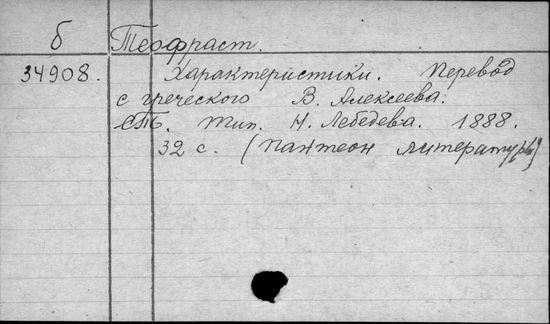 б Теофраст.
34908. Характеристики. Перевод
с греческого В. Алексеева.
СПБ. Тип. Н. Лебедева. 1888.
32 с. (Пантеон литературы)